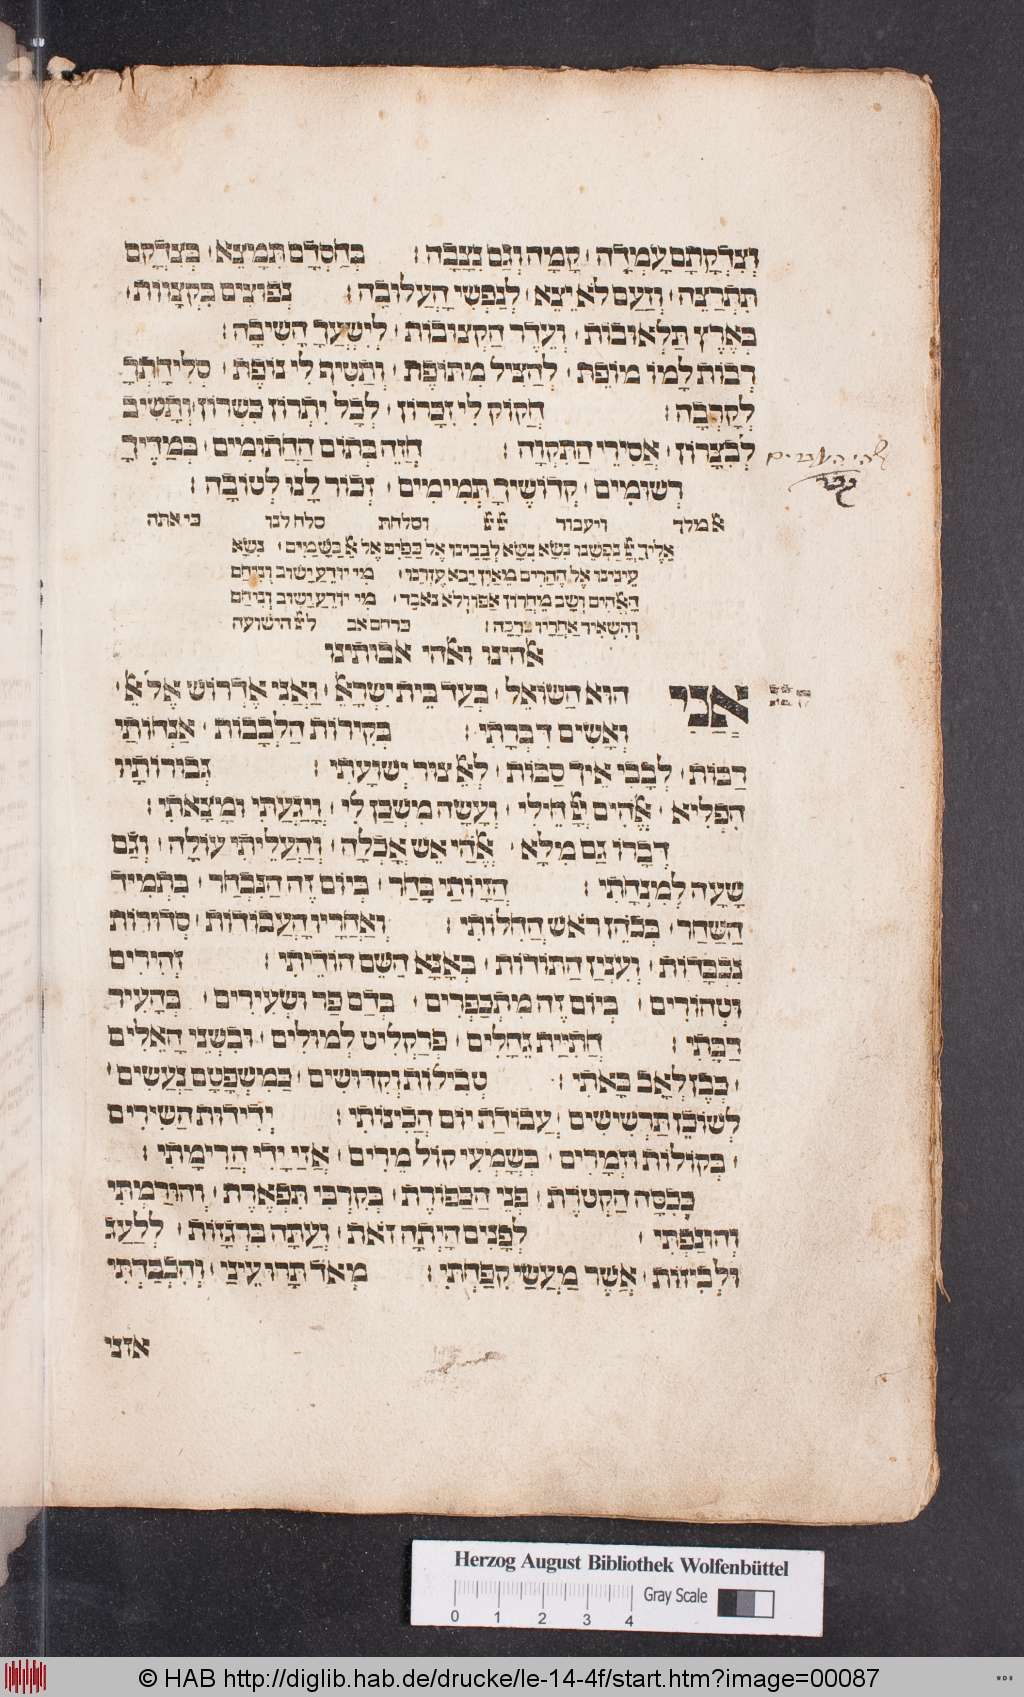 וְצִדְקָתָם עָמְדָה · קָמָה וְגַם נִצָּבָה : בְּחַסְדָּם תִּמָּצֵא · בְּצִדְקָם
תִּתְרַצֶּה · וְזַעַם לֹא יֵצֵא · לְנַפְשִׁי הָעֲלוּבָה : נְפוּצִים בִּקְצָווֹת ·
בְּאֶרֶץ תַּלְאוּבוֹת · וְעֵדֶר הַקְּצוּבוֹת · לְיִשְׁעֲךָ הָשִׁיבָה :
לָמוֹ מוֹפֵת · לְהַצִּיל מִתּוֹפֶת · וְתַטִּיף לִי נוֹפֶת · סְלִיחָתְךָ
לְקָרְבָה : חֲקוֹק לִי זִכְרוֹן · לְכָל יִתְרוֹן כִּשְׁרוֹן · וְתָשִׁיב
לְבִצָּרוֹן · אֲסִירֵי הַתִּקְוָה : חֲזֵה בְּתוֹם הַחֲתוּמִים ·
רְשׁוּמִים · קְדוֹשֶׁיךָ תְּמִימִים · זְכוֹר לָנוּ לְטוֹבָה :
אל מלך ויעבור יי יי וסלחת סלח לנו כי אתה
אֵלֶיךָ יי נַפְשֵׁנוּ נִשָּׂא נִשָּׂא לְבָבֵינוּ אֶל כַּפַּיִם אֶל אל בַּשָּׁמַיִם · נִשָּׂא
עֵינֵינוּ אֶל הֶהָרִים מֵאַיִן יָבֹא עֶזְרֵנוּ · מִי יוֹדֵעַ יָשׁוּב וְנִיחַם
הָאלהִים וְשָׁב מֵחֲרוֹן אַפּוֹ וְלֹא נֹאבֵד · מִי יוֹדֵעַ יָשׁוּב וְנִיחַם
וְהִשְׁאִיר אַחֲרָיו בְּרָכָה : כרחם אב ליי הישועה
אלהינו ואלהי אבותינו
אֲנִי הוּא הַשּׁוֹאֵל · בְּעַד בֵּית יִשְׂרָאל · וַאֲנִי אֶדְרוֹשׁ אֶל אל ·
וְאָשִׂים דִּבְרָתִי : בְּקִירוֹת הַלְּבָבוֹת · אַנְחוֹתַי
רַבּוֹת · לְבָבִי אֵיךְ סַבּוֹת · לְאל צוּר יְשׁוּעָתִי : גְּבוּרוֹתָיו
הִפְלִיא · אֱלהִים יי חֵילִי · וְעָשָׂה מִשְׁכַּן לִי · וְיָגַעְתִּי וּמָצָאתִי :
דְּבָרוֹ גַם מִלָּא · אֱלהַי אֵשׁ אָכְלָה · וְהַעֲלֵיתִי עוֹלָה · וְגַם
שָׁעָה לְמִנְחָתִי : הַזָּיוֹתַי בָּחַר · בְּיוֹם זֶה הַנִּבְחָר · כִּתְמִיד
הַשַּׁחַר · כְּכֹהֵן רֹאשׁ הַחִלּוֹתִי : וְאַחֲרָיו הָעֲבוֹדוֹת · סְדוּרוֹת
נִכְבָּדוֹת · וְעִנְיַן הַתּוֹדוֹת · בְּאָנָּא הַשֵּׁם הוֹדֵיתִי : זְהִירִים
וּטְהוֹרִים · בְּיוֹם זֶה מִתְכַּפְּרִים · בְּדַם פַּר וּשְׂעִירִים ·
חֲתִיַּת גֶּחָלִים · פְּרַקְלִיט לְמוּלִים · וּבִשְׁנֵי הָאֵלִים
· בְּכֵן לְאָב בָּאתִי : טְבִילוֹת וְקִדּוּשִׁים · כְּמִשְׁפָּטָם נַעֲשִׂים ·
לְשׁוֹכֵן תַּרְשִׁישִׁים · עֲבוֹדַת יוֹם הֲכִינוֹתִי : יְדִידוּת הַשִּׁירִים
· בְּקוֹלוֹת וּזְמָרִים · בְּשָׁמְעִי קוֹל מֵרִים · אֲזַי יָדִי הֲרִימָתִי :
כְּכִסָּה הַקְּטֹרֶת · פְּנֵי הַכַּפּוֹרֶת · בְּקִרְבִּי תִּפְאֶרֶת · וְהוּרַמְתִּי
וְהוּנַפְתִּי : לְפָנִים הָיְתָה זֹאת · וְעַתָּה בִּרְגָזוֹת · לְלַעַג
וּלְבִיזוֹת · אֲשֶׁר מַעֲשַׂי קִפַּחְתִּי : מְאֹד תָּרוּ עֵינַי · וְהִכְבַּדְתִּי
אדני
Herzog August Bibliothek Wolfenbüttel
Gray Scale
0 1 2 3 4
© HAB http://diglib.hab.de/drucke/le-14-4f/start.htm?image=00087